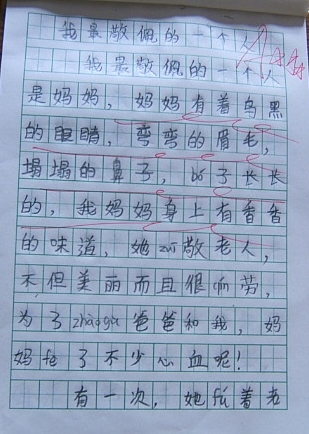 我最敬佩的一个人
我最敬佩的一个人
是妈妈，妈妈有着乌黑
的眼睛，弯弯的眉毛，
塌塌的鼻子，bó子长长
的，我妈妈身上有香香
的味道，她zūi敬老人，
不但美丽而且很qín劳，
为了zhàogu爸爸和我，妈
妈fe了不少心血呢！
有一次，她fú着老